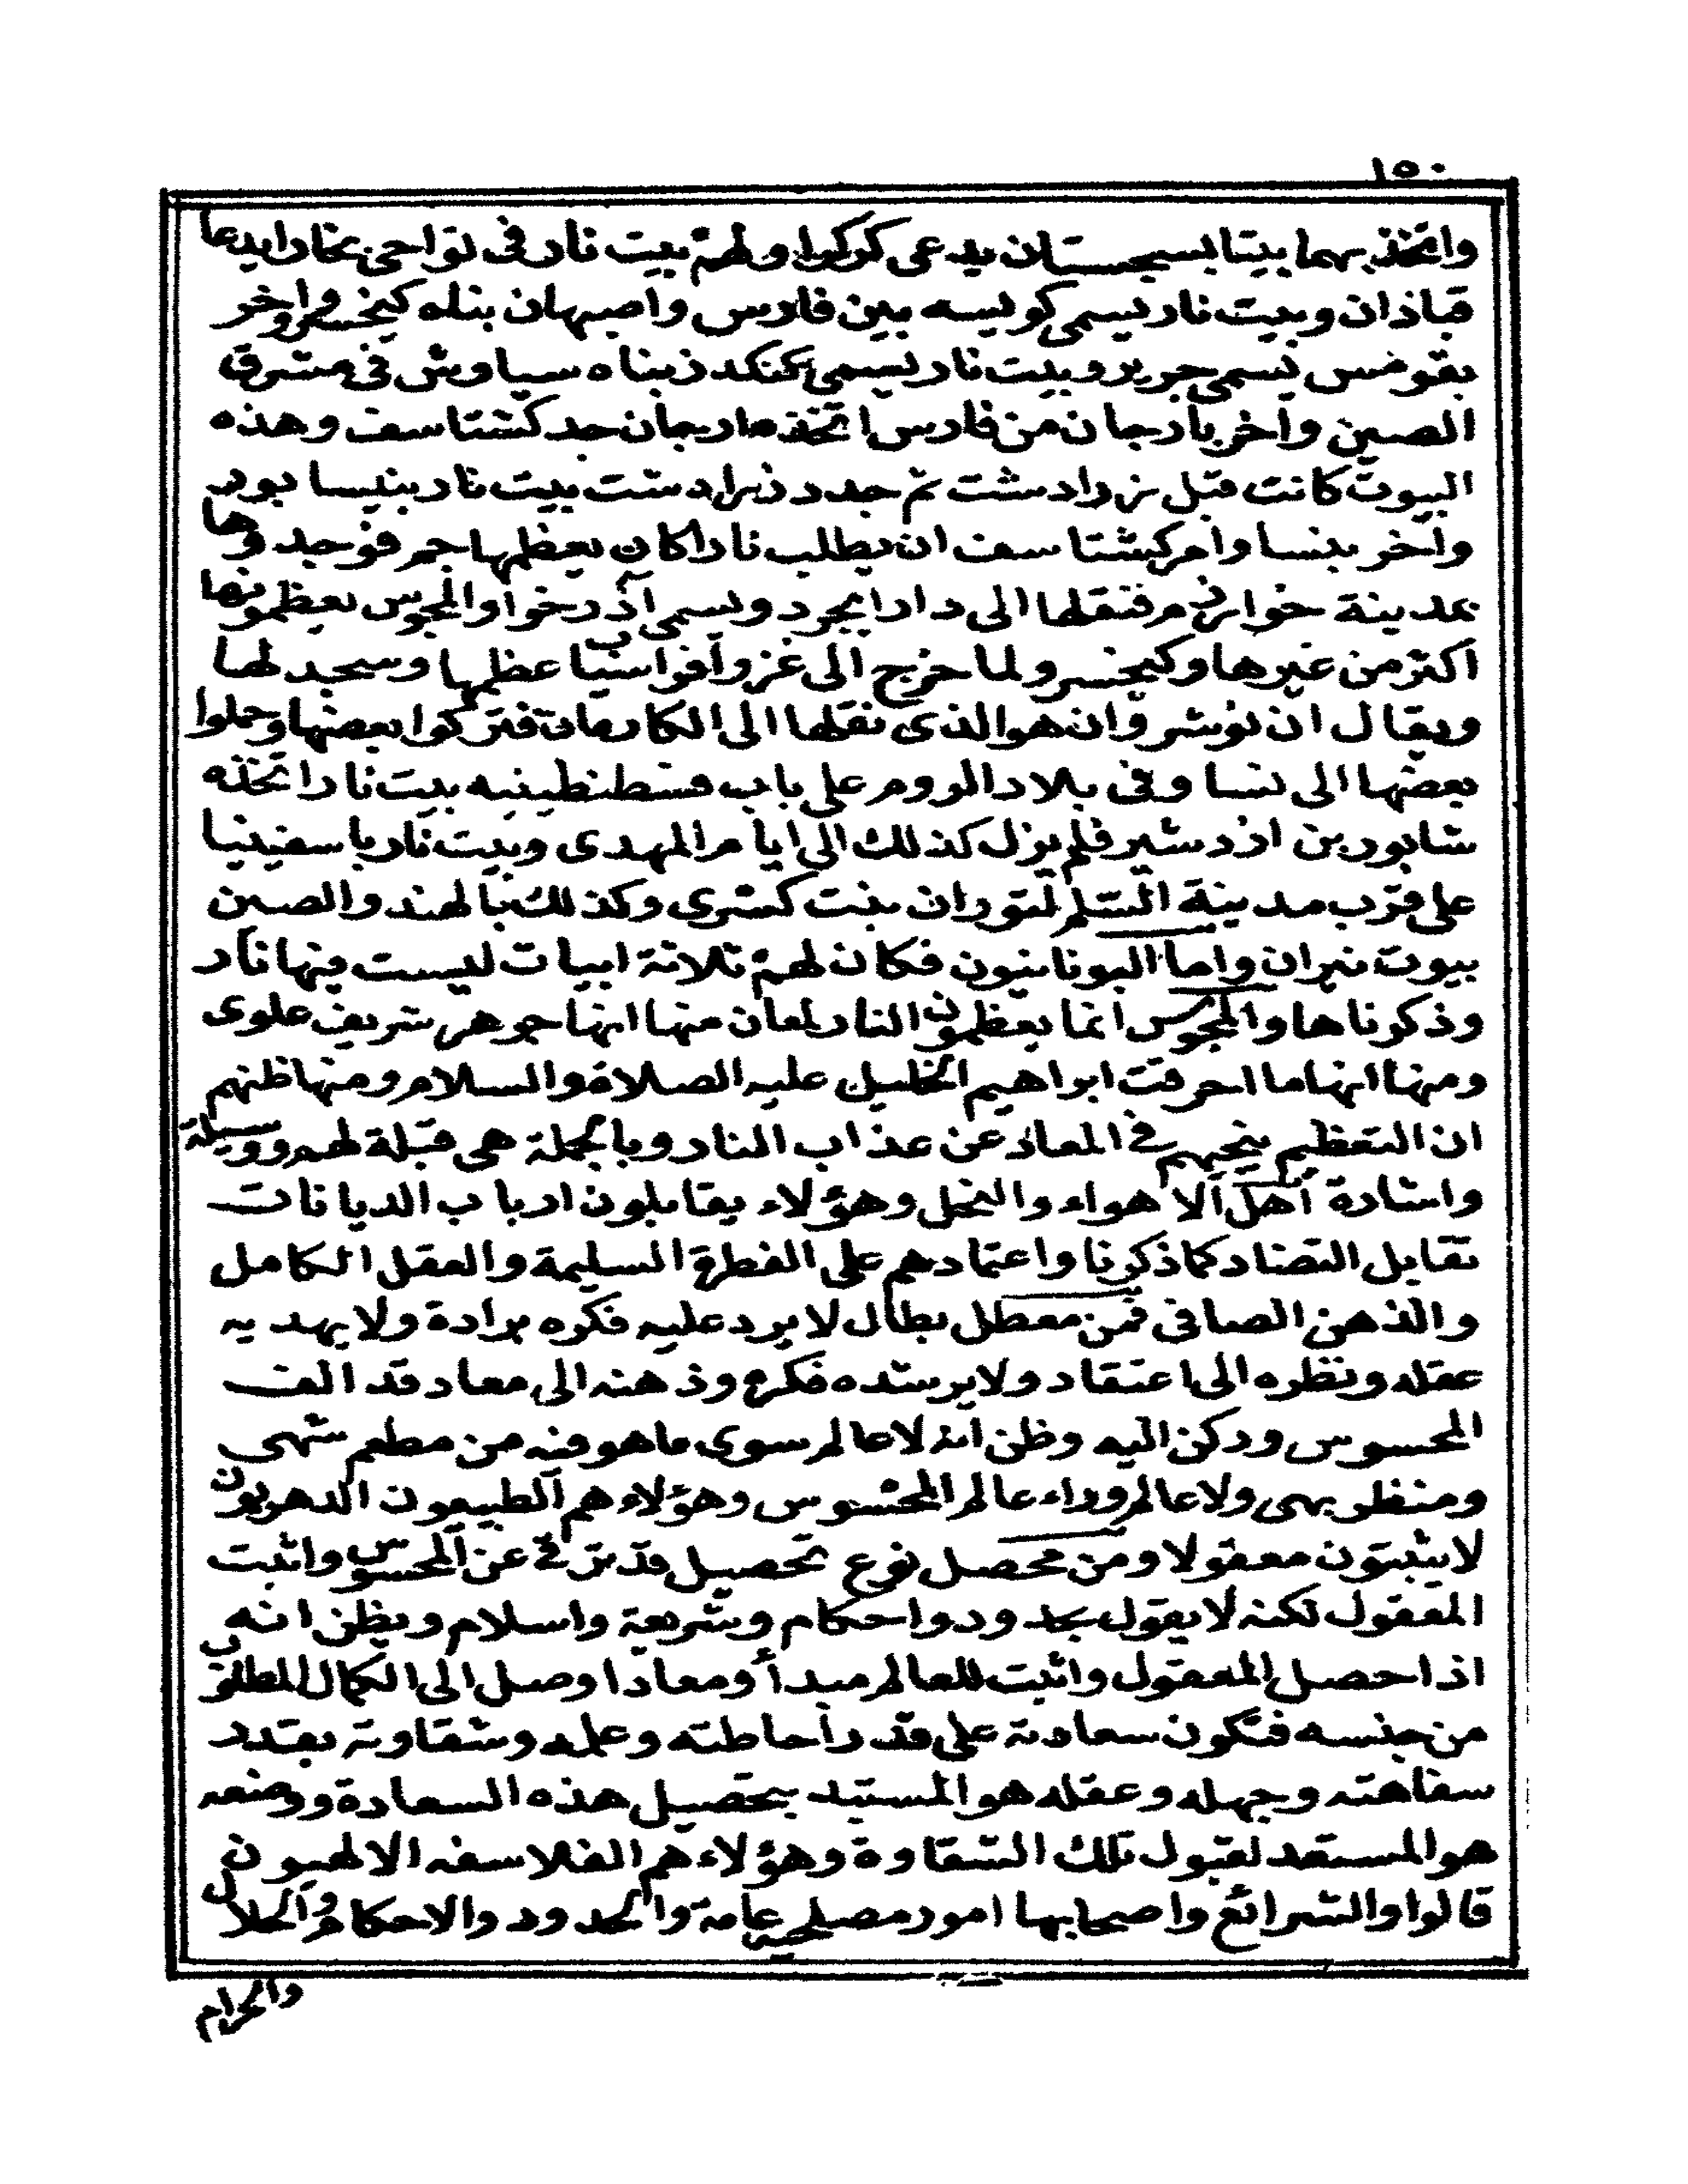 ١٥٠
واتخذ بهما بيتا بسجستان يدعى كركوا ولهم بيت نار في نواحى بخارا يدعا
قباذان وبيت نار يسمى كويسه بين فارس واصبهان بناه كيخسرو واخر
بقومس يسمى جرير وبيت نار يسمى كنكدز بناه سياوش في مشرق
الصين واخر بارجان من فارس اتخذه ارجان جد كشتاسف وهذه
البيوت كانت قبل زرادشت ثم جدد زرادشت بيت نار بنيسابور
واخر بنسا وامر كشتاسف ان يطلب نارا كان يعظمها جم فوجدوها
بمدينة خوارزم فنقلها الى دارابجرد ويسمى آذرخوا والمجوس يعظمونها
اكثر من غيرها وكيخسرو لما خرج الى غزو افراسياب عظمها وسجد لها
ويقال ان نوشروان هو الذى نقلها الى الكاريان فتركوا بعضها وحملوا
بعضها الى نسا وفي بلاد الروم على باب قسطنطينيه بيت نار اتخذه
شابور بن ازدشير فلم يزل كذلك الى ايام المهدى وبيت نار باسفينيا
على قرب مدينة السلم لتوران بنت كسرى وكذلك بالهند والصين
بيوت نيران واما اليونانيون فكان لهم ثلاثة ابيات ليست فيها نار
وذكرناها والمجوس انما يعظمون النار لمعان منها انها جوهر شريف علوى
ومنها انها ما احرقت ابراهيم الخليل عليه الصلاة والسلام ومنها ظنهم
ان التعظيم ينجيهم في المعاد عن عذاب النار وبالجملة هى قبلة لهم ووسيلة
واشارة اهل الاهواء والنحل وهؤلاء يقابلون ارباب الديانات
تقابل التضاد كما ذكرنا واعتمادهم على الفطرة السليمة والعقل الكامل
والذهن الصافي فمن معطل بطال لا يرد عليه فكره برادة ولا يهديه
عقله ونظره الى اعتقاد ولا يرشده فكره وذهنه الى معاد قد الف
المحسوس وركن اليه وظن انه لا عالم سوى ما هو فيه من مطعم شهى
ومنظر بهى ولا عالم وراء عالم المحسوس وهؤلاء هم الطبيعيون الدهريون
لا يثبتون معقولا ومن محصل نوع تحصيل قد ترقى عن المحسوس واثبت
المعقول لكنه لا يقول بحدود واحكام وشريعة واسلام ويظن انه
اذا حصل المعقول واثبت للعالم مبدأ ومعادا وصل الى الكمال المطلوب
من جنسه فتكون سعادته على قدر احاطته وعلمه وشقاوته بقدر
سفاهته وجهله وعقله هو المستبد بتحصيل هذه السعادة ووضعه
هو المستعد لقبول تلك الشقاوة وهؤلاء هم الفلاسفه الالهيون
قالوا والشرائع واصحابها امور مصلحية عامة والحدود والاحكام والحلال
والحرام